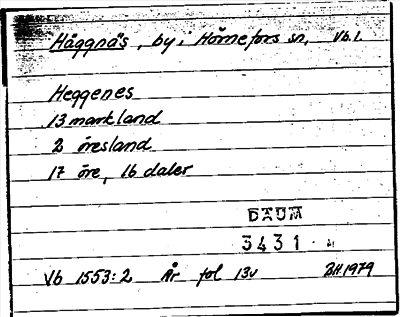 Häggnäs, by, Hörnefors sn, Vb l.
Heggenes
13 markland
2 öresland
17 öre, 16 daler
DAUM
3431
Vb 1553:2 År fol 13v BH 1979